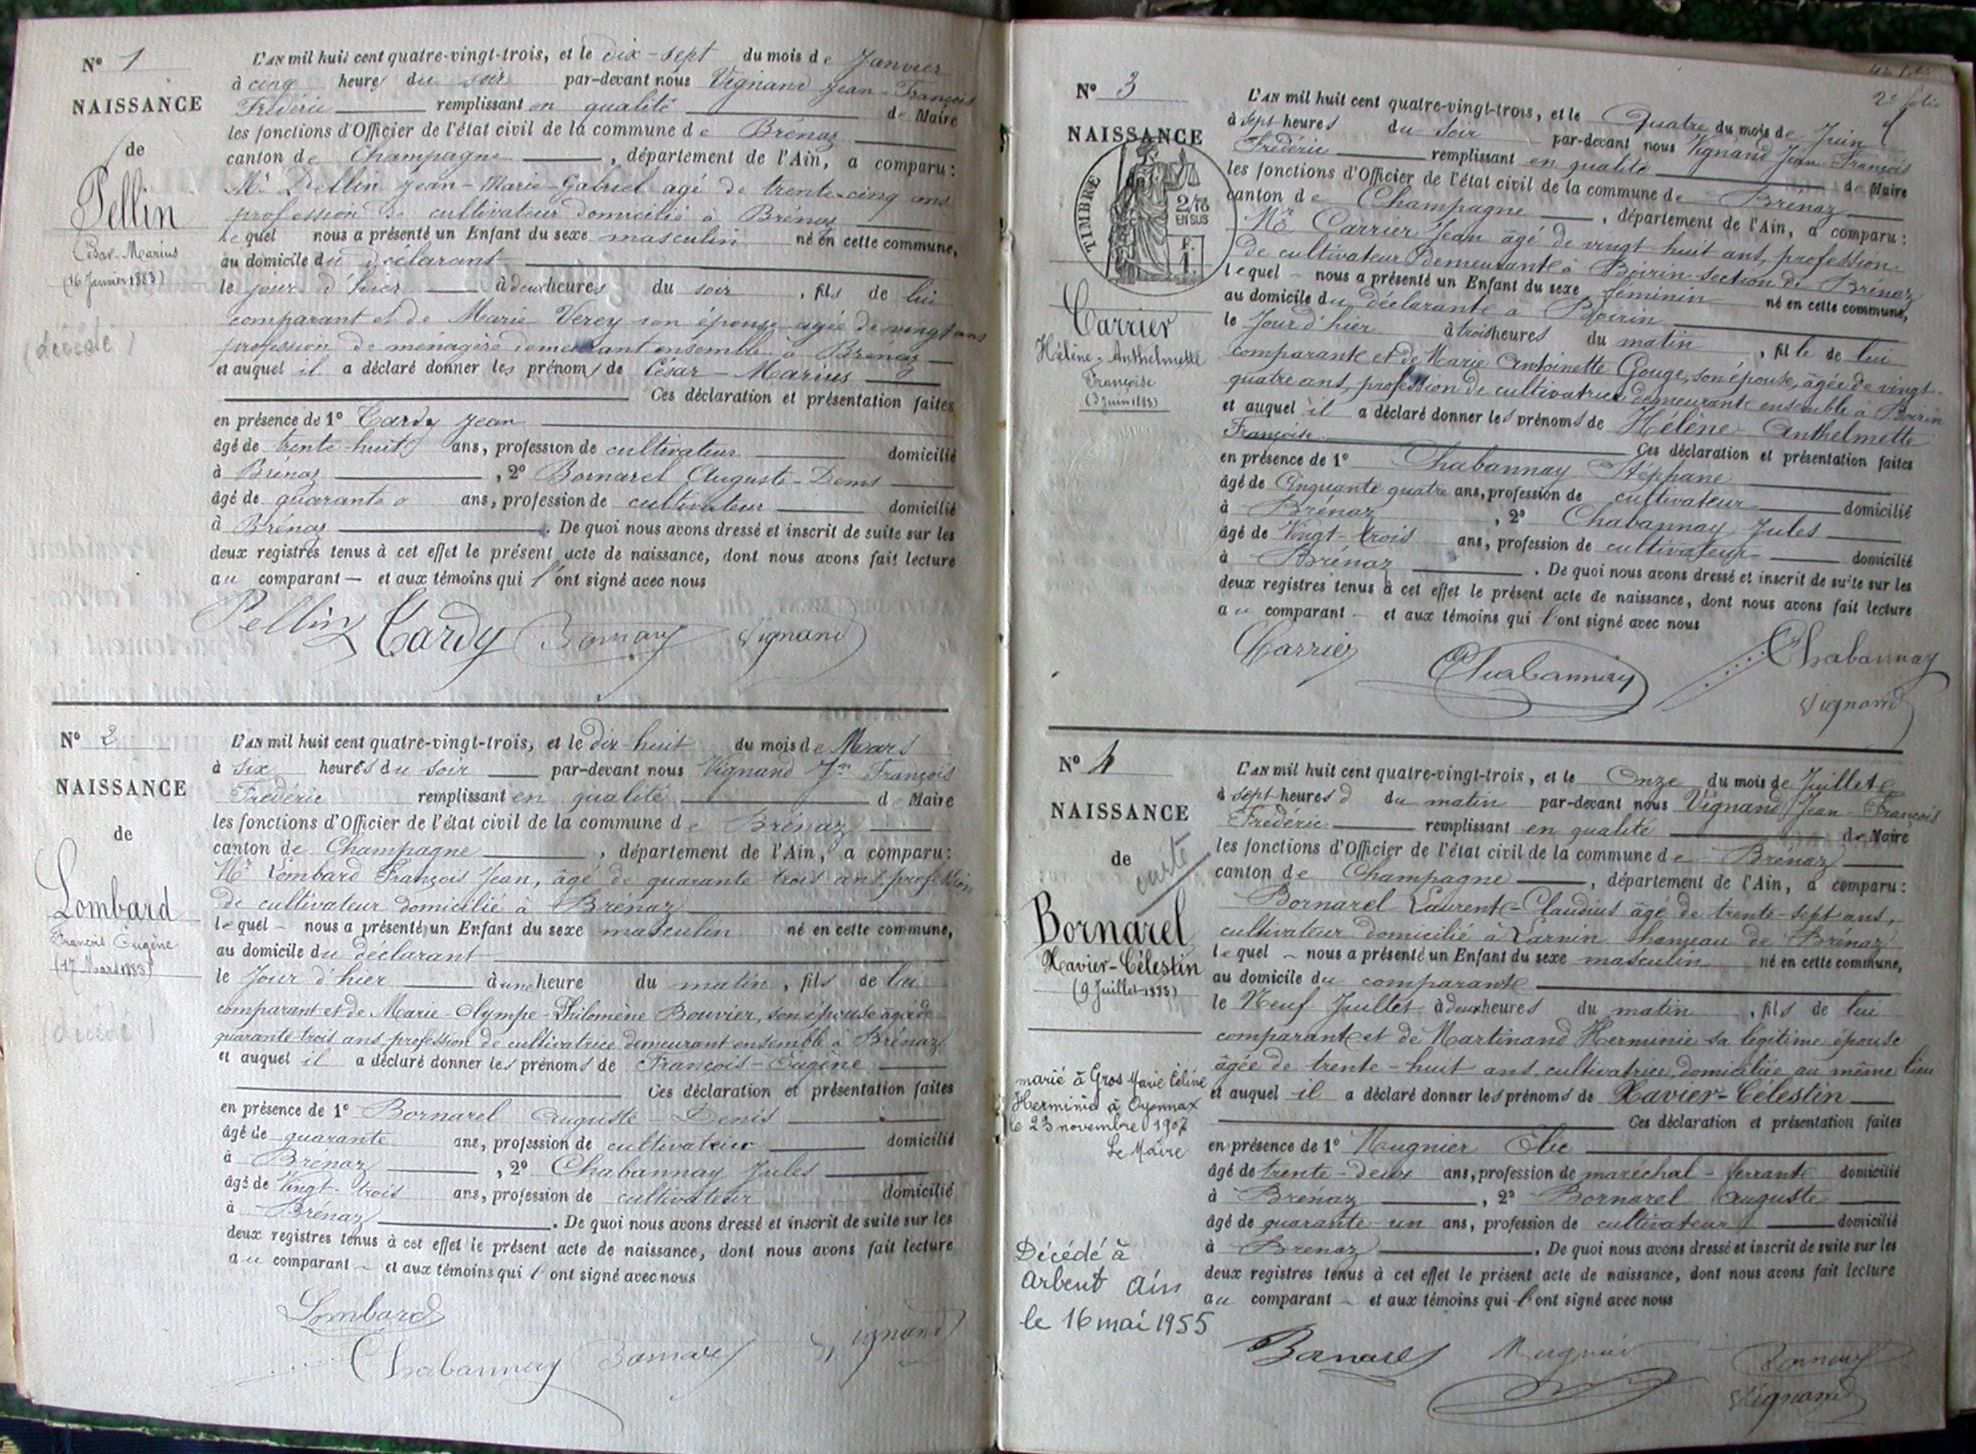 N° 1
NAISSANCE
de
Pellin
César-Marius
(16 Janvier 1883)
(décédé)
L'AN mil huit cent quatre-vingt-trois, et le dix-sept du mois de Janvier
à cinq heures du soir par-devant nous Vignand Jean-François
Frédéric remplissant en qualité de Maire
les fonctions d'Officier de l'état civil de la commune de Brénaz
canton de Champagne, département de l'Ain, a comparu :
Mr Pellin Jean-Marie-Gabriel agé de trente-cinq ans
profession de cultivateur domicilié à Brénaz
lequel nous a présenté un Enfant du sexe masculin né en cette commune,
au domicile du déclarant
le jour d'hier à deux heures du soir, fils de lui
comparant et de Marie Verey son épouse agée de vingt ans
profession de ménagère demeurant ensemble à Brénaz
et auquel il a déclaré donner les prénoms de César-Marius
Ces déclaration et présentation faites
en présence de 1° Tardy Jean
âgé de trente-huit ans, profession de cultivateur domicilié
à Brénaz, 2° Bornarel Auguste-Denis
âgé de quarante ans, profession de cultivateur domicilié
à Brénaz. De quoi nous avons dressé et inscrit de suite sur les
deux registres tenus à cet effet le présent acte de naissance, dont nous avons fait lecture
au comparant et aux témoins qui l'ont signé avec nous
Pellin Tardy Bornarel Vignand
N° 2
NAISSANCE
de
Lombard
François Eugène
(17 Mars 1883)
(décédé)
L'AN mil huit cent quatre-vingt-trois, et le dix-huit du mois de Mars
à six heures du soir par-devant nous Vignand Jn François
Frédéric remplissant en qualité de Maire
les fonctions d'Officier de l'état civil de la commune de Brénaz
canton de Champagne, département de l'Ain, a comparu :
Mr Lombard François Jean, âgé de quarante trois ans, profession
de cultivateur domicilié à Brénaz
lequel nous a présenté un Enfant du sexe masculin né en cette commune,
au domicile du déclarant
le Jour d'hier à une heure du matin, fils de lui
comparant et de Marie-Olympe-Philomène Bouvier, son épouse âgée de
quarante trois ans profession de cultivatrice demeurant ensemble à Brénaz
et auquel il a déclaré donner les prénoms de François-Eugène
Ces déclaration et présentation faites
en présence de 1° Bornarel Auguste Denis
âgé de quarante ans, profession de cultivateur domicilié
à Brénaz, 2° Chabannay Jules
âgé de Vingt-trois ans, profession de cultivateur domicilié
à Brénaz. De quoi nous avons dressé et inscrit de suite sur les
deux registres tenus à cet effet le présent acte de naissance, dont nous avons fait lecture
au comparant et aux témoins qui l'ont signé avec nous
Lombard
Chabannay Bornarel Vignand
2e folio
N° 3
NAISSANCE
TIMBRE
2/10 EN SUS
Carrier
Hélène-Anthelmette
Françoise
(3 Juin 1883)
L'AN mil huit cent quatre-vingt-trois, et le Quatre du mois de Juin
à sept heures du soir par-devant nous Vignand Jean-François
Frédéric remplissant en qualité de Maire
les fonctions d'Officier de l'état civil de la commune de Brénaz
canton de Champagne, département de l'Ain, a comparu :
Mr Carrier Jean âgé de vingt huit ans, profession
de cultivateur demeurant à Boirin section de Brénaz
lequel nous a présenté un Enfant du sexe féminin né en cette commune,
au domicile du déclarant à Boirin
le Jour d'hier à trois heures du matin, fille de lui
comparant et de Marie Antoinette Gouge, son épouse, âgée de vingt-
quatre ans, profession de cultivatrice demeurant ensemble à Boirin
et auquel il a déclaré donner les prénoms de Hélène-Anthelmette
Françoise
Ces déclaration et présentation faites
en présence de 1° Chabannay Stéphane
âgé de Cinquante quatre ans, profession de cultivateur domicilié
à Brénaz, 2° Chabannay Jules
âgé de Vingt-trois ans, profession de cultivateur domicilié
à Brénaz. De quoi nous avons dressé et inscrit de suite sur les
deux registres tenus à cet effet le présent acte de naissance, dont nous avons fait lecture
au comparant et aux témoins qui l'ont signé avec nous
Carrier Chabannay Chabannay
Vignand
N° 4
NAISSANCE
de
Bornarel
Xavier-Célestin
(9 Juillet 1883)
marié à Gros Marie Céline
Herminia à Oyonnax
le 23 novembre 1907
Le Maire
Décédé à
Arbent Ain
le 16 mai 1955
L'AN mil huit cent quatre-vingt-trois, et le Onze du mois de Juillet
à sept heures du matin par-devant nous Vignand Jean-François
Frédéric remplissant en qualité de Maire
les fonctions d'Officier de l'état civil de la commune de Brénaz
canton de Champagne, département de l'Ain, a comparu :
Bornarel Laurent-Claudius âgé de trente-sept ans,
cultivateur domicilié à Larnin hameau de Brénaz
lequel nous a présenté un Enfant du sexe masculin né en cette commune,
au domicile du comparant
le Neuf Juillet à deux heures du matin, fils de lui
comparant et de Martinand Herminie sa légitime épouse
âgée de trente-huit ans, cultivatrice, domiciliée au même lieu
et auquel il a déclaré donner les prénoms de Xavier-Célestin
Ces déclaration et présentation faites
en présence de 1° Mugnier Elie
âgé de trente-deux ans, profession de maréchal-ferrant domicilié
à Brenaz, 2° Bornarel Auguste
âgé de quarante-un ans, profession de cultivateur domicilié
à Brenaz. De quoi nous avons dressé et inscrit de suite sur les
deux registres tenus à cet effet le présent acte de naissance, dont nous avons fait lecture
au comparant et aux témoins qui l'ont signé avec nous
Bornarel Mugnier Bornarel
Vignand